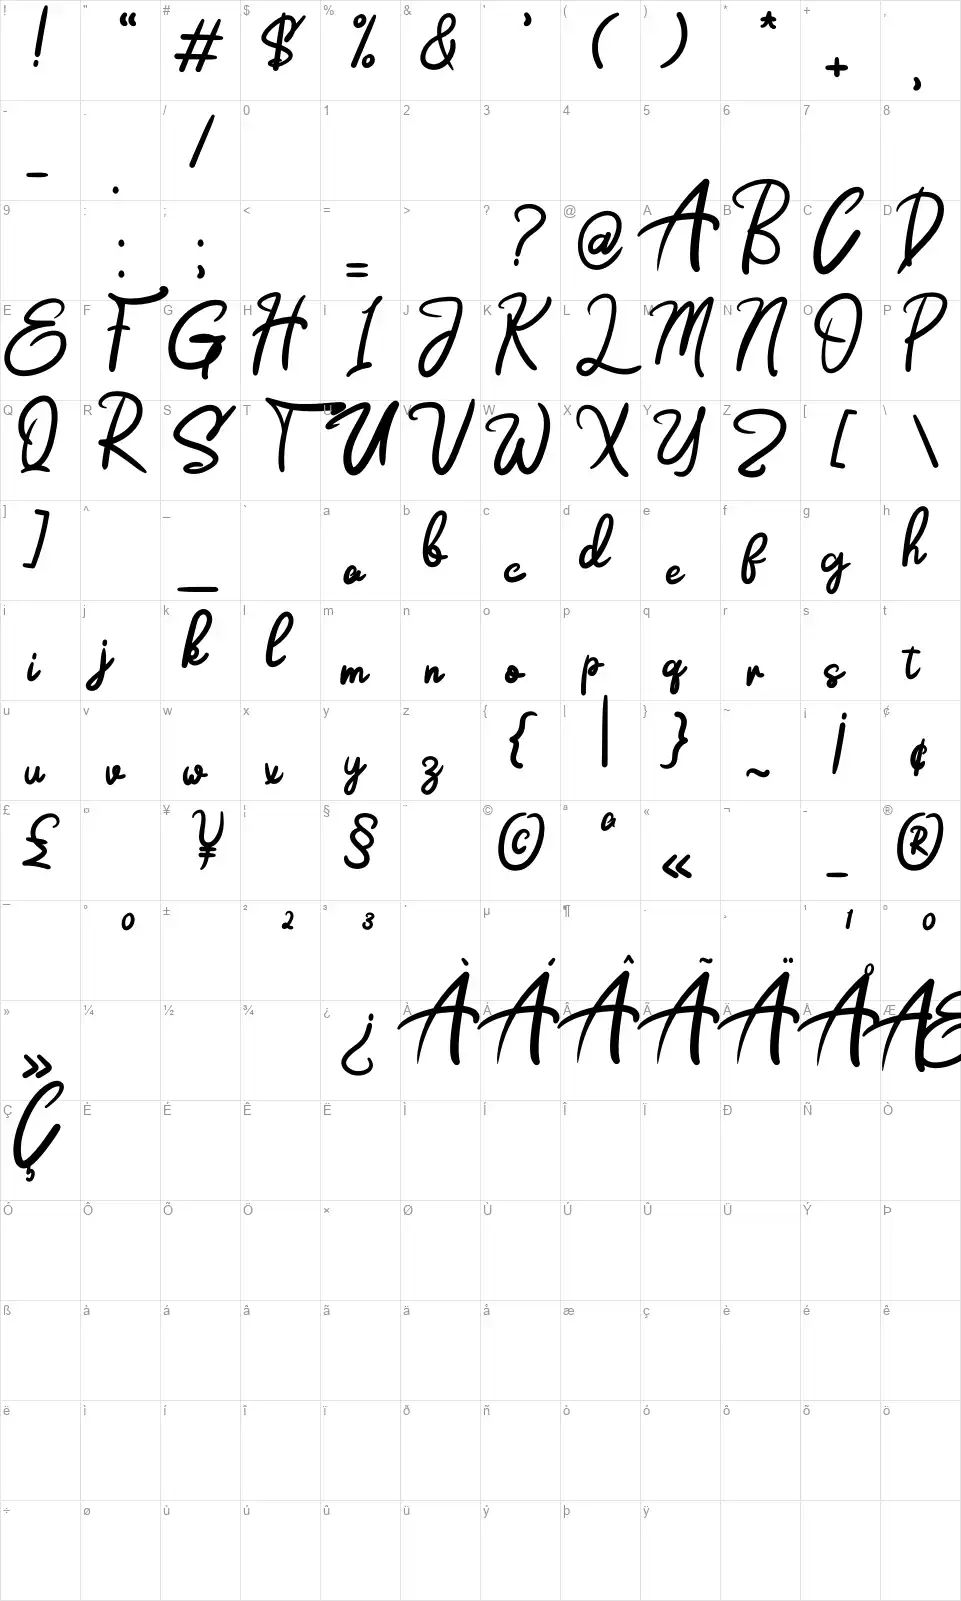 ! " # $ % & ' ( ) * + ,
! “ # $ % & ’ ( ) * + ,
- . / 0 1 2 3 4 5 6 7 8
- . /
9 : ; < = > ? @ A B C D
: ; = ? @ A B C D
E F G H I J K L M N O P
E F G H I J K L M N O P
Q R S T U V W X Y Z [ \
Q R S T U V W X Y Z [ \
] ^ _ ` a b c d e f g h
] _ a b c d e f g h
i j k l m n o p q r s t
i j k l m n o p q r s t
u v w x y z { | } ~ ¡ ¢
u v w x y z { | } ~ ¡ ¢
£ ¤ ¥ ¦ § ¨ © ª « ¬ - ®
£ ¥ § © ª « - ®
¯ ° ± ² ³ ´ µ ¶ · ¸ ¹ º
0 2 3 1 0
» ¼ ½ ¾ ¿ À Á Â Ã Ä Å Æ
» ¿ À Á Â Ã Ä Å Æ
Ç È É Ê Ë Ì Í Î Ï Ð Ñ Ò
Ç
Ó Ô Õ Ö × Ø Ù Ú Û Ü Ý Þ
ß à á â ã ä å æ ç è é ê
ë ì í î ï ð ñ ò ó ô õ ö
÷ ø ù ú û ü ý þ ÿ